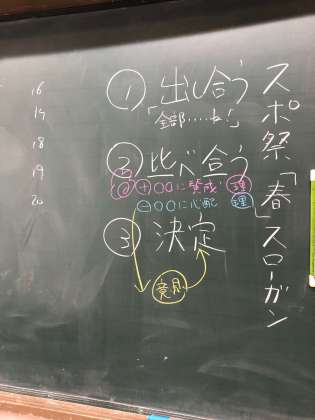 スポ祭「春」スローガン
① 出し合う
「全部……ね!」
② 比べ合う
⊕〇〇に賛成 理
⊖〇〇に心配 理
③ 決定
16
18
19
20